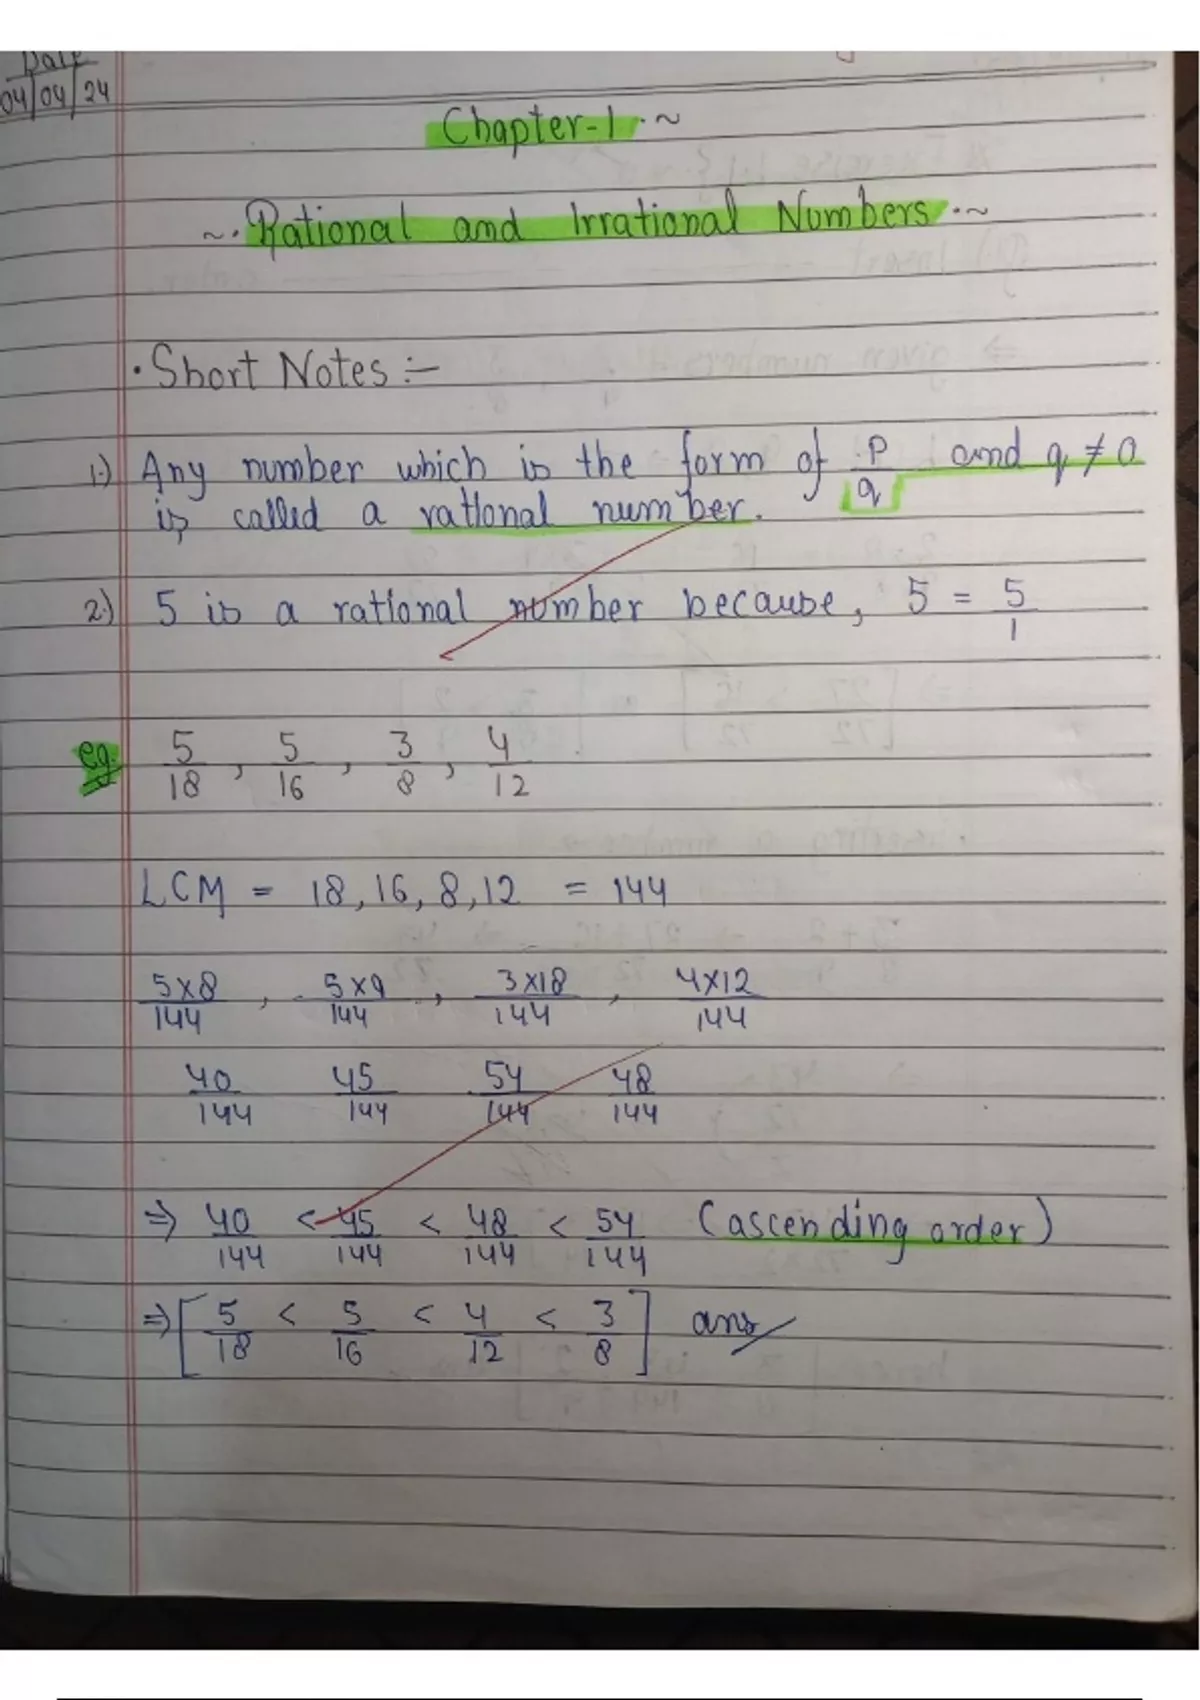 Date
04/04/24
Chapter-1 .~
~. Rational and Irrational Numbers .~
. Short Notes :-
1.) Any number which is the form of p/q and q ≠ 0
is called a rational number.
2.) 5 is a rational number because, 5 = 5/1
eg. 5/18 , 5/16 , 3/8 , 4/12
LCM = 18, 16, 8, 12 = 144
5×8/144 , 5×9/144 , 3×18/144 , 4×12/144
40/144 45/144 54/144 48/144
⇒ 40/144 < 45/144 < 48/144 < 54/144 (ascending order)
⇒ [ 5/18 < 5/16 < 4/12 < 3/8 ] ans